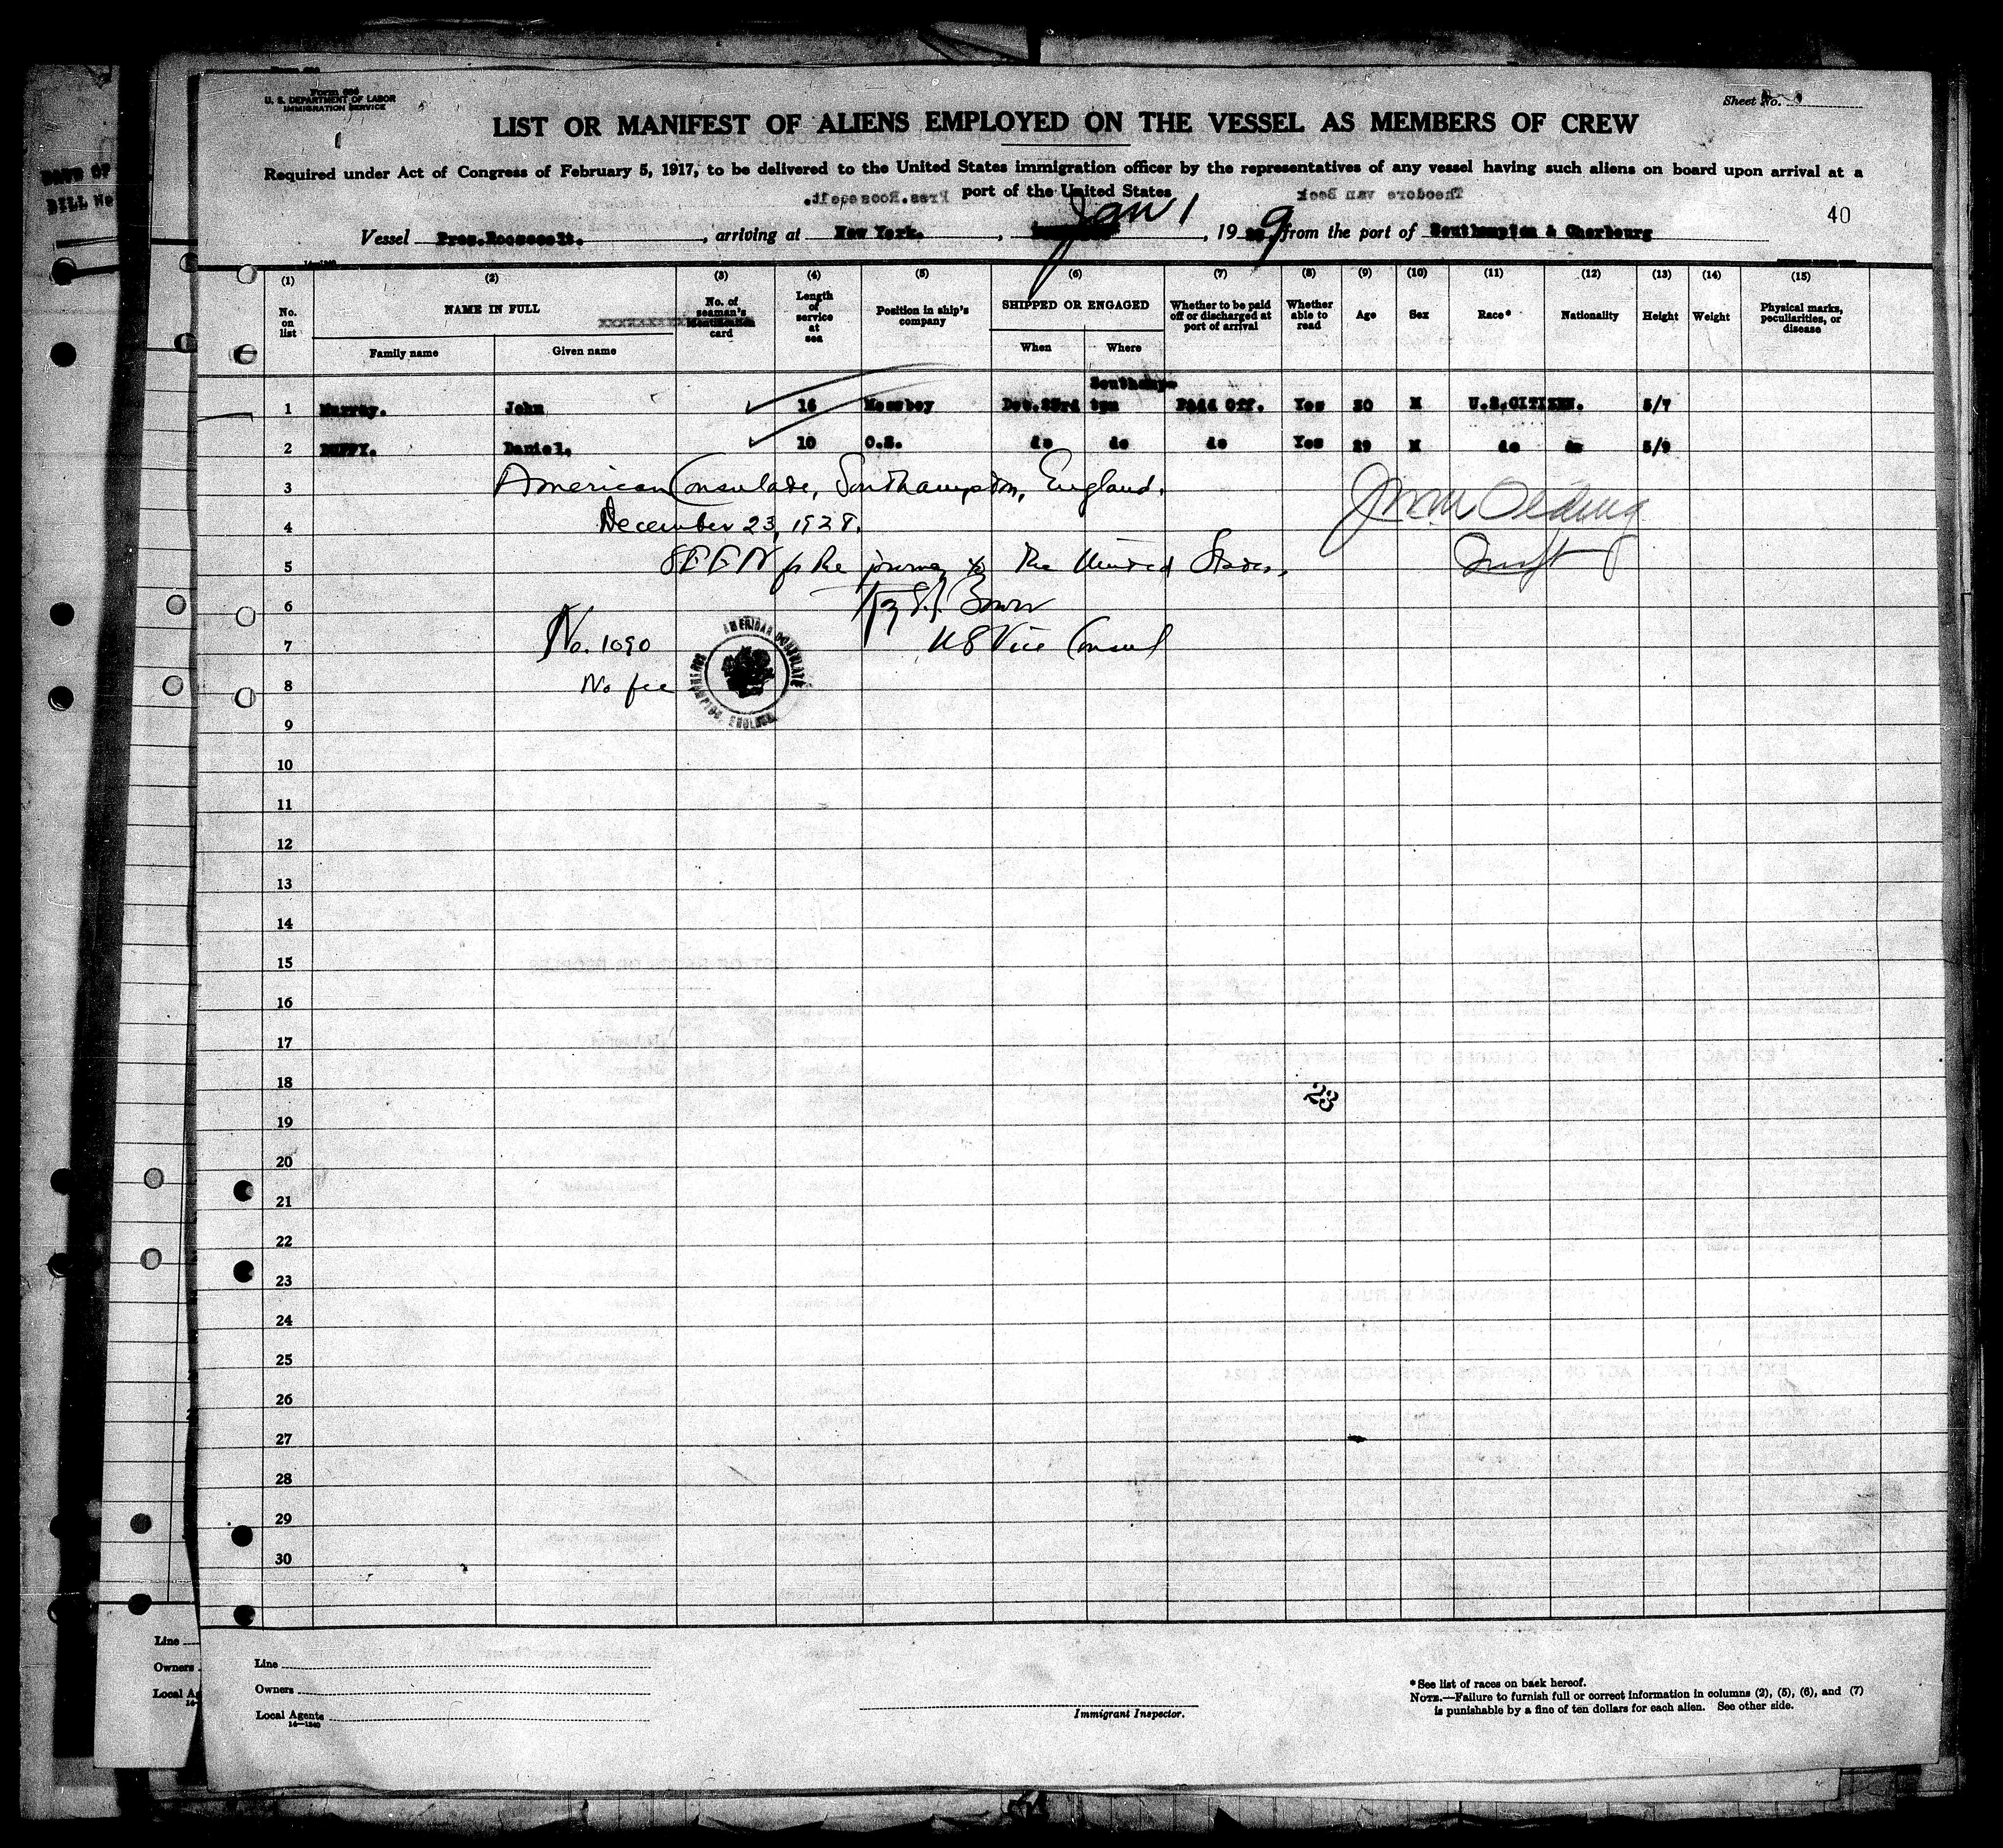 Form 686
U. S. DEPARTMENT OF LABOR
IMMIGRATION SERVICE
Sheet No.
LIST OR MANIFEST OF ALIENS EMPLOYED ON THE VESSEL AS MEMBERS OF CREW
Required under Act of Congress of February 5, 1917, to be delivered to the United States immigration officer by the representatives of any vessel having such aliens on board upon arrival at a
port of the United States
Pres.Roosevelt.
Theodore van Beek
40
Vessel Pres.Roosevelt., arriving at New York., Jan 1, 19 9 from the port of Southampton & Cherbourg
(1) (2) (3) (4) (5) (6) (7) (8) (9) (10) (11) (12) (13) (14) (15)
No. on list
NAME IN FULL
Family name
Given name
No. of seaman's identification card
Length of service at sea
Position in ship's company
SHIPPED OR ENGAGED
When
Where
Whether to be paid off or discharged at port of arrival
Whether able to read
Age
Sex
Race*
Nationality
Height
Weight
Physical marks, peculiarities, or disease
1 Murray. John 16 Messboy Dec.23rd Southampton Paid Off. Yes 30 M U.S.CITIZEN. 5/7
2 DUFFY. Daniel. 10 O.S. do do do Yes 29 M do do 5/9
3 American Consulate, Southampton, England.
4 December 23, 1928.
5 SEEN for the journey to the United States.
6
7 No. 1090 US Vice Consul
8 No fee
AMERICAN CONSULATE
SOUTHAMPTON, ENGLAND
9
10
11
12
13
14
15
16
17
18
23
19
20
21
22
23
24
25
26
27
28
29
30
Line
Owners
Local Agents
14—1240
Immigrant Inspector.
*See list of races on back hereof.
NOTE.—Failure to furnish full or correct information in columns (2), (5), (6), and (7)
is punishable by a fine of ten dollars for each alien. See other side.
DATE OF
BILL No
Line
Owners
Local Ag